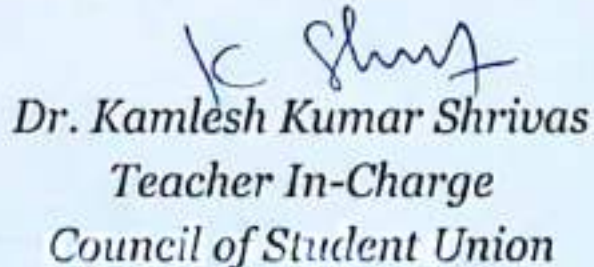 Dr. Kamlesh Kumar Shrivas
Teacher In-Charge
Council of Student Union